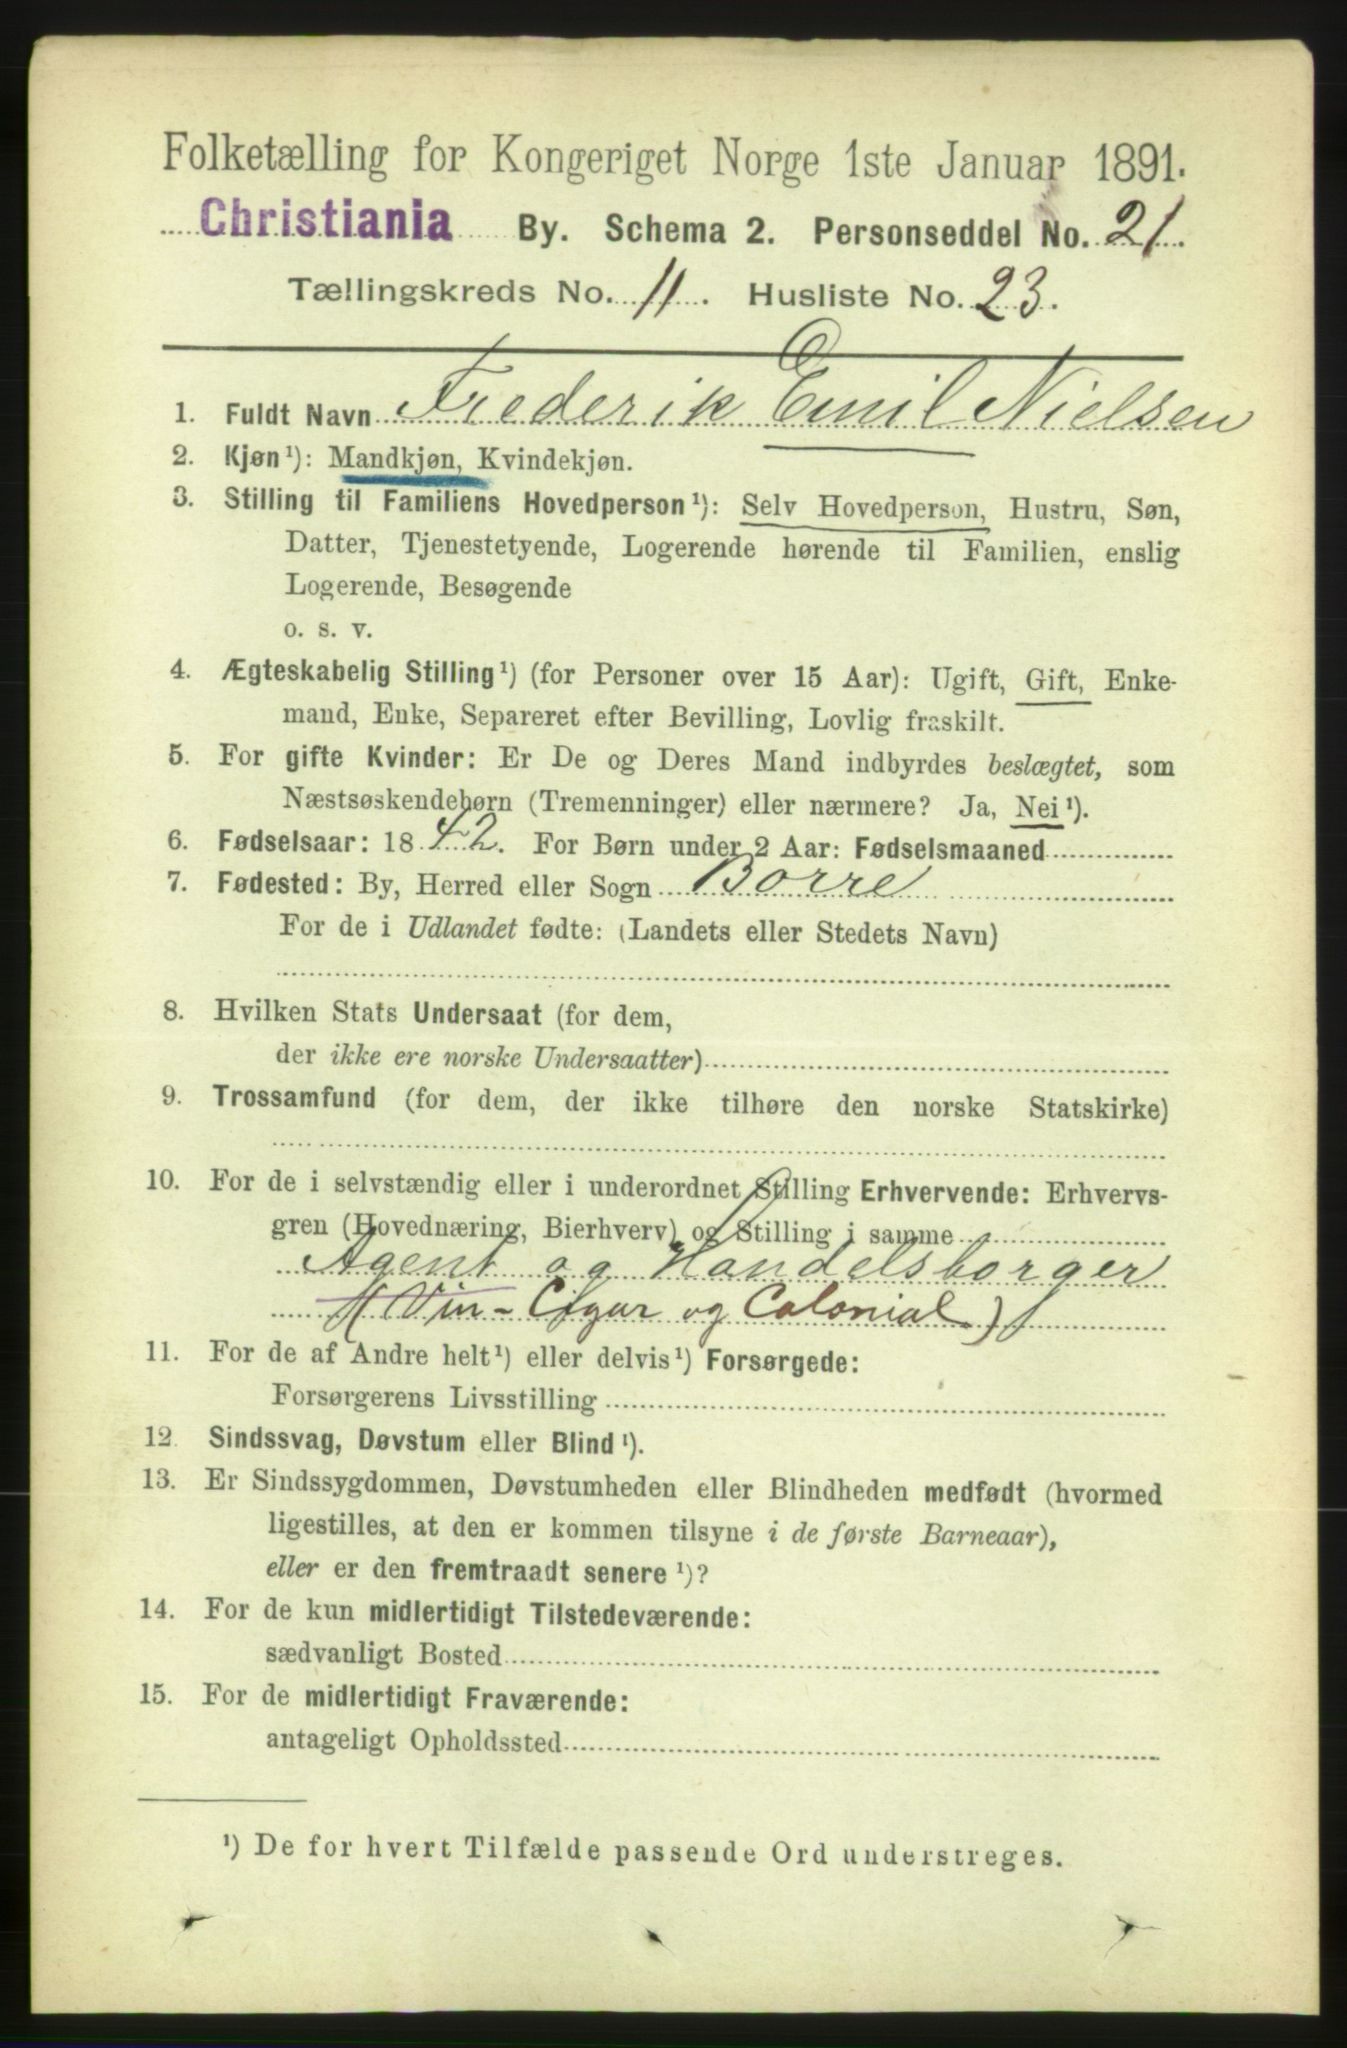 Folketælling for Kongeriget Norge 1ste Januar 1891.
Christiania By. Schema 2. Personseddel No. 21.
Tællingskreds No. 11. Husliste No. 23.
1. Fuldt Navn Frederik Emil Nielsen
2. Kjøn¹): Mandkjøn, Kvindekjøn.
3. Stilling til Familiens Hovedperson¹): Selv Hovedperson, Hustru, Søn,
Datter, Tjenestetyende, Logerende hørende til Familien, enslig
Logerende, Besøgende
o. s. v.
4. Ægteskabelig Stilling¹) (for Personer over 15 Aar): Ugift, Gift, Enke-
mand, Enke, Separeret efter Bevilling, Lovlig fraskilt.
5. For gifte Kvinder: Er De og Deres Mand indbyrdes beslægtet, som
Næstsøskendebørn (Tremenninger) eller nærmere? Ja, Nei¹).
6. Fødselsaar: 1842. For Børn under 2 Aar: Fødselsmaaned
7. Fødested: By, Herred eller Sogn Borre
For de i Udlandet fødte: (Landets eller Stedets Navn)
8. Hvilken Stats Undersaat (for dem,
der ikke ere norske Undersaatter)
9. Trossamfund (for dem, der ikke tilhøre den norske Statskirke)
10. For de i selvstændig eller i underordnet Stilling Erhvervende: Erhvervs-
gren (Hovednæring, Bierhverv) og Stilling i samme
Agent og Handelsborger
(Vin-Cigar og Colonial)
11. For de af Andre helt¹) eller delvis¹) Forsørgede:
Forsørgerens Livsstilling
12. Sindssvag, Døvstum eller Blind¹).
13. Er Sindssygdommen, Døvstumheden eller Blindheden medfødt (hvormed
ligestilles, at den er kommen tilsyne i de første Barneaar),
eller er den fremtraadt senere¹)?
14. For de kun midlertidigt Tilstedeværende:
sædvanligt Bosted
15. For de midlertidigt Fraværende:
antageligt Opholdssted
¹) De for hvert Tilfælde passende Ord understreges.